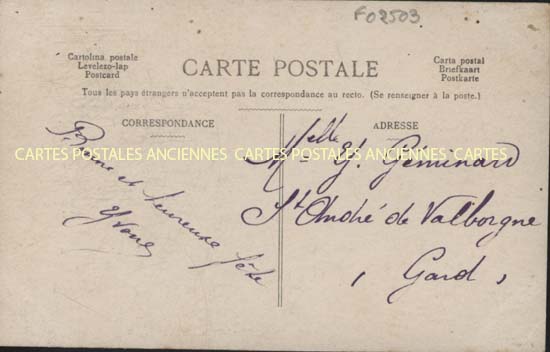 F02503
Cartolina postale
Levelezo-lap
Postcard
CARTE POSTALE
Carta postal
Briefkaart
Postkarte
Tous les pays étrangers n'acceptent pas la correspondance au recto. (Se renseigner à la poste.)
CORRESPONDANCE
ADRESSE
Bonne et heureuse fête
Yvonne
Melle Y. Géminard
St André de Valborgne
(Gard)
CARTES POSTALES ANCIENNES CARTES POSTALES ANCIENNES CARTES